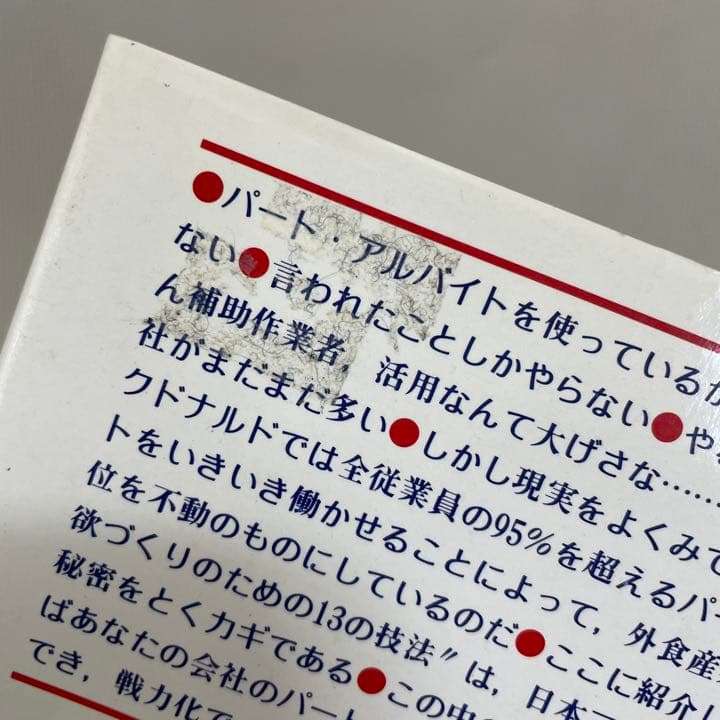 ●パート・アルバイトを使っているが
ない●言われたことしかやらない●や
ん補助作業者，活用なんて大げさな……
社がまだまだ多い●しかし現実をよくみて
クドナルドでは全従業員の95%を超えるパー
トをいきいき働かせることによって，外食産
位を不動のものにしているのだ●ここに紹介し
欲づくりのための13の技法〟は，日本一
秘密をとくカギである●この中
ばあなたの会社のパート
でき，戦力化で